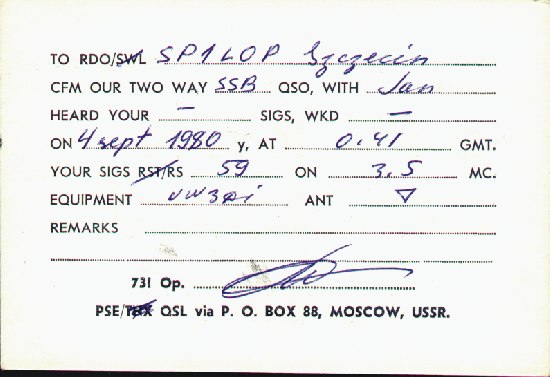 TO RDO/SWL SP1LOP Szczecin
CFM OUR TWO WAY SSB QSO, WITH Jan
HEARD YOUR — SIGS, WKD —
ON 4 sept 1980 y, AT 0.41 GMT.
YOUR SIGS RST/RS 59 ON 3,5 MC.
EQUIPMENT UW3DI ANT ▽
REMARKS
731 Op.
PSE/TNX QSL via P. O. BOX 88, MOSCOW, USSR.